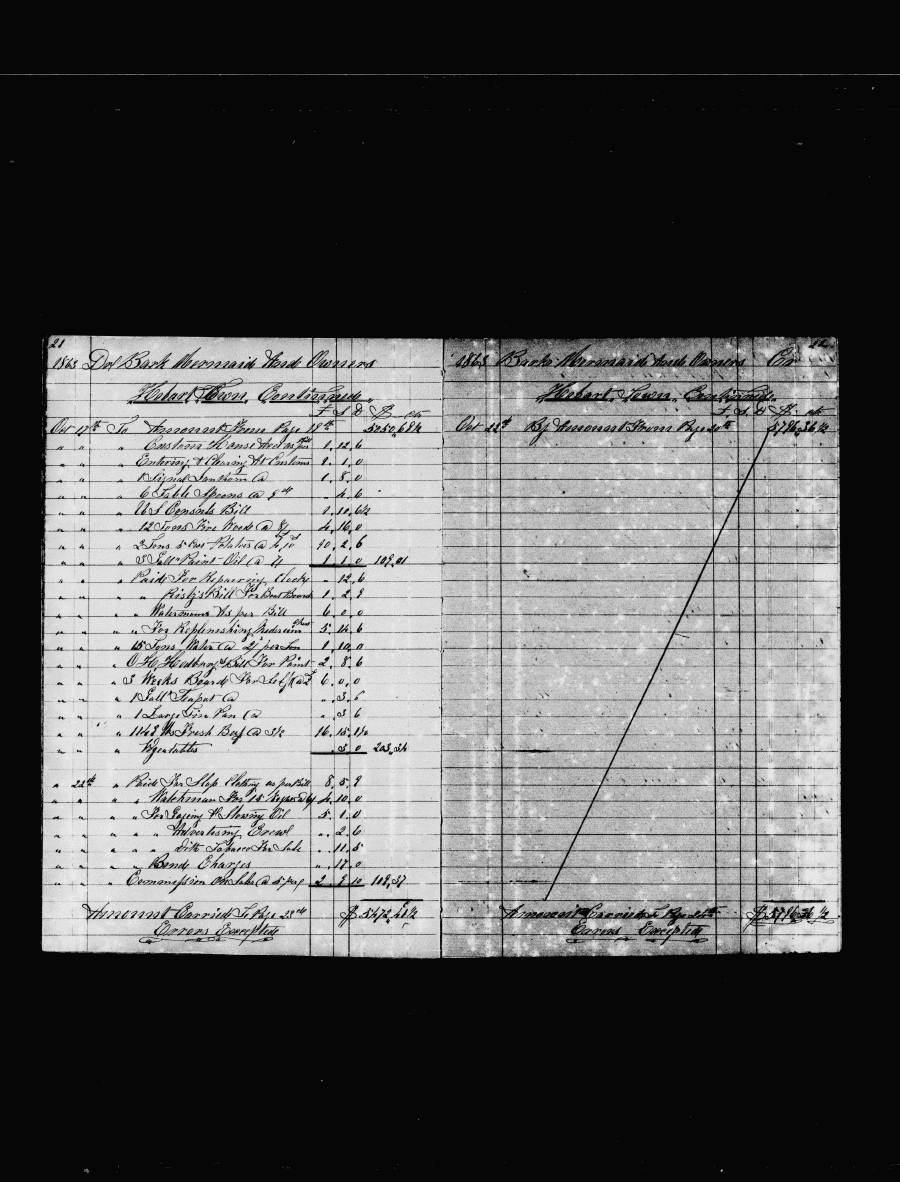 21
1863 Dr Bark Mermaid And Owners
Hobart Town Continued
£ S D $ cts
Oct 17th To Amount From Page 19th 5050,68½
" " " Custom House Fees as per Bill 1.12.6
" " " Entering & Clearing At Customs 1.1.0
" " " 1 Signal Lanthorn @ 1.8.0
" " " 6 Table Spoons @ 9d ".4.6
" " " U S Consuls Bill
" " " 12 Tons Fire Wood @ 8/ 4.16.0
" " " 2 Tons 5 Potatoes @ 10.2.6
" " " 3 Gall Paint Oil @ 7/ 1.1.0 109,01
" " " Paid For Repairing Clocks ".12.6
" " " " Bill For Boat Boards 1.2.9
" " " " Watermans As per Bill 6.0.0
" " " " For Replenishing Medicine Chest 5.14.6
" " " 15 Tons Water @ 2/ per Ton 1.10.0
" " " Bill For Paint 2.8.6
" " " 3 Weeks Board For Self @ 6.0.0
" " " 1 Gall Teapot @ ".3.6
" " " 1 Large Tin Pan @ ".3.6
" " " 1148 lbs Fresh Beef @ 3½ 16.15.
" " " Vegetables .3.0 203,34
" 22nd " Paid For Slop Clothing as per Bill 8.5.9
" " " " Watchman For 15 4.10.0
" " " " For & Stowing Oil 5.1.0
" " " " " Advertising Crew ".2.6
" " " " " Ditto Tobacco For Sale ".11.5
" " " " Bond Charges ".17.0
" " " Commission On Sales @ 5 per 2.9.10 109,37
Amount Carried To Page 23rd $ 5472,40½
Errors Excepted
22
1863 Bark Mermaid And Owners Cr
Hobart Town Continued
£ S D $ cts
Oct 22nd By Amount From Page 20th 5796,36½
Amount Carried To Page 24th $ 5796,36½
Errors Excepted